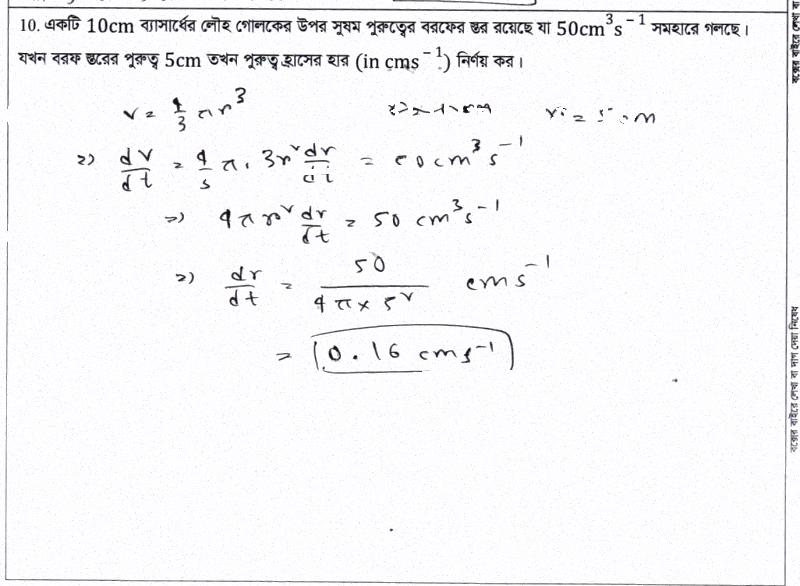 10. একটি 10cm ব্যাসার্ধের লৌহ গোলকের উপর সুষম পুরুত্বের বরফের স্তর রয়েছে যা 50cm³s⁻¹ সমহারে গলছে।
যখন বরফ স্তরের পুরুত্ব 5cm তখন পুরুত্ব হ্রাসের হার (in cms⁻¹) নির্ণয় কর।
v = 4/3 πr³
⇒) dv/dt = 4/3 π. 3r² dr/dt = 50cm³s⁻¹
⇒) 4πr² dr/dt = 50 cm³s⁻¹
⇒) dr/dt = 50/(4π×5²) cms⁻¹
= 0.16 cms⁻¹
বক্সের বাইরে লেখা বা দাগ দেয়া নিষেধ